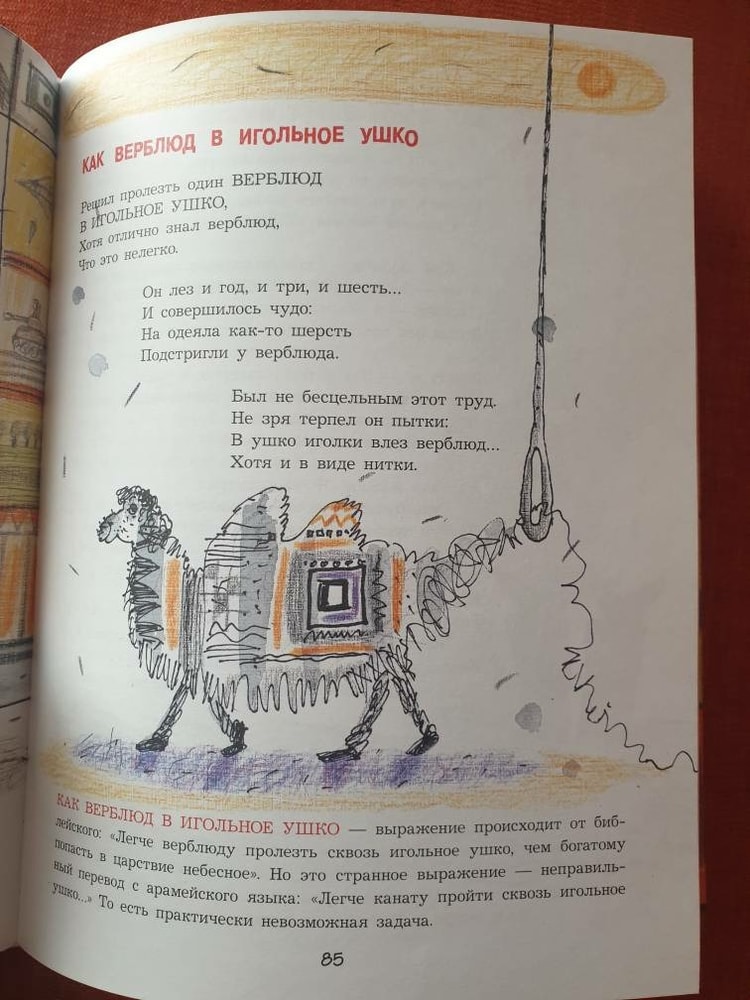 КАК ВЕРБЛЮД В ИГОЛЬНОЕ УШКО
Решил пролезть один ВЕРБЛЮД
В ИГОЛЬНОЕ УШКО,
Хотя отлично знал верблюд,
Что это нелегко.
Он лез и год, и три, и шесть...
И совершилось чудо:
На одеяла как-то шерсть
Подстригли у верблюда.
Был не бесцельным этот труд.
Не зря терпел он пытки:
В ушко иголки влез верблюд...
Хотя и в виде нитки.
КАК ВЕРБЛЮД В ИГОЛЬНОЕ УШКО — выражение происходит от биб-
лейского: «Легче верблюду пролезть сквозь игольное ушко, чем богатому
попасть в царствие небесное». Но это странное выражение — неправиль-
ный перевод с арамейского языка: «Легче канату пройти сквозь игольное
ушко...» То есть практически невозможная задача.
85